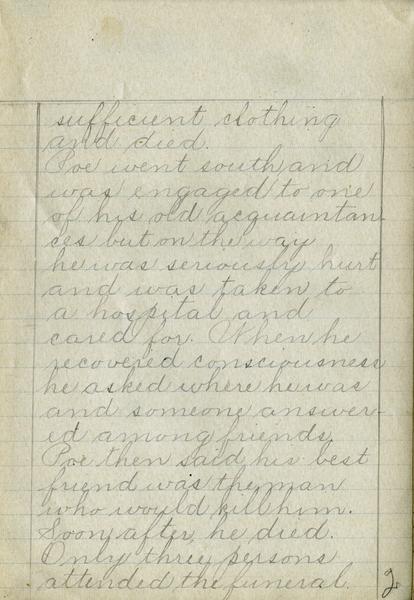 sufficient clothing
and died.
Poe went south and
was engaged to one
of his old acquaintan-
ces but on the way
he was seriously hurt
and was taken to
a hospital and
cared for. When he
recovered consciousness
he asked where he was
and someone answer-
ed among friends.
Poe then said his best
friend was the man
who would kill him.
Soon after he died.
Only three persons
attended the funeral.
2.